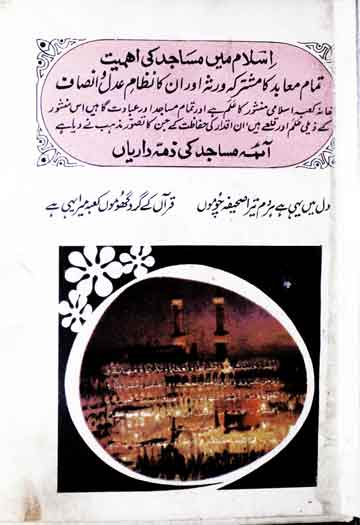 اسلام میں مساجد کی اہمیت
تمام معابد کا مشترکہ ورثہ اور ان کا نظامِ عدل و انصاف
خانہ کعبہ اسلامی منشور کا علم ہے اور تمام مساجد اور عبادت گاہیں اس منشور
کے ذیلی علم اور قلعے ہیں، ان اقدار کی حفاظت کے جن کا تصور مذہب نے دیا ہے
آئمہ مساجد کی ذمہ داریاں
دل میں یہی ہے ہر دم تیرا صحیفہ چوموں قرآں کے گرد گھوموں کعبہ میرا یہی ہے